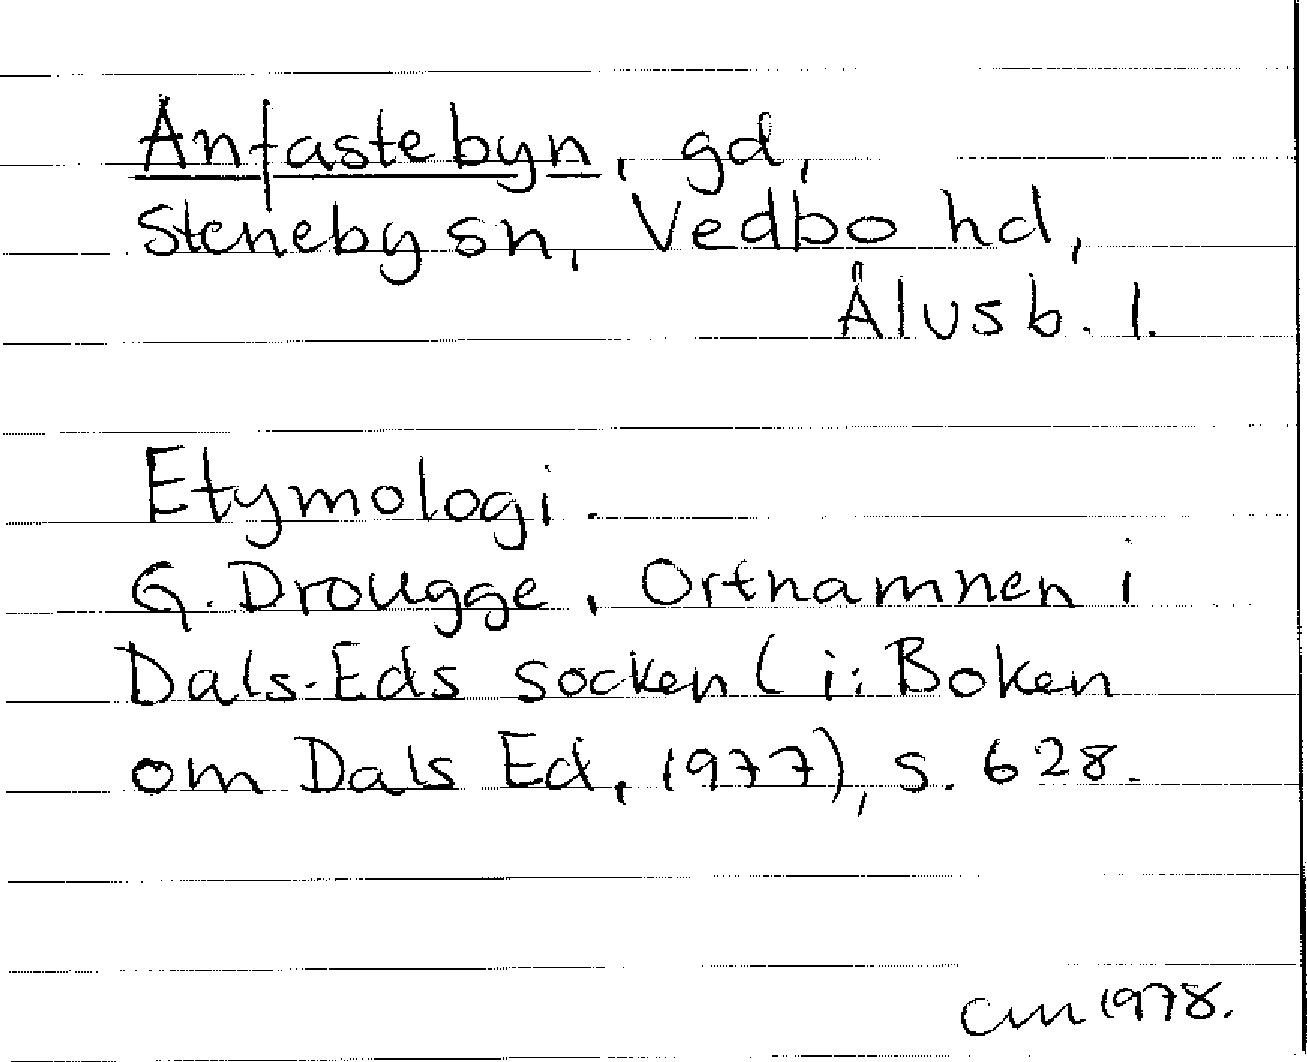 Anfastebyn, gd,
Steneby sn, Vedbo hd,
Älvsb. l.
Etymologi.
G. Drougge, Ortnamnen i
Dals-Eds socken (i: Boken
om Dals Ed, 1977), s. 628.
cm 1978.